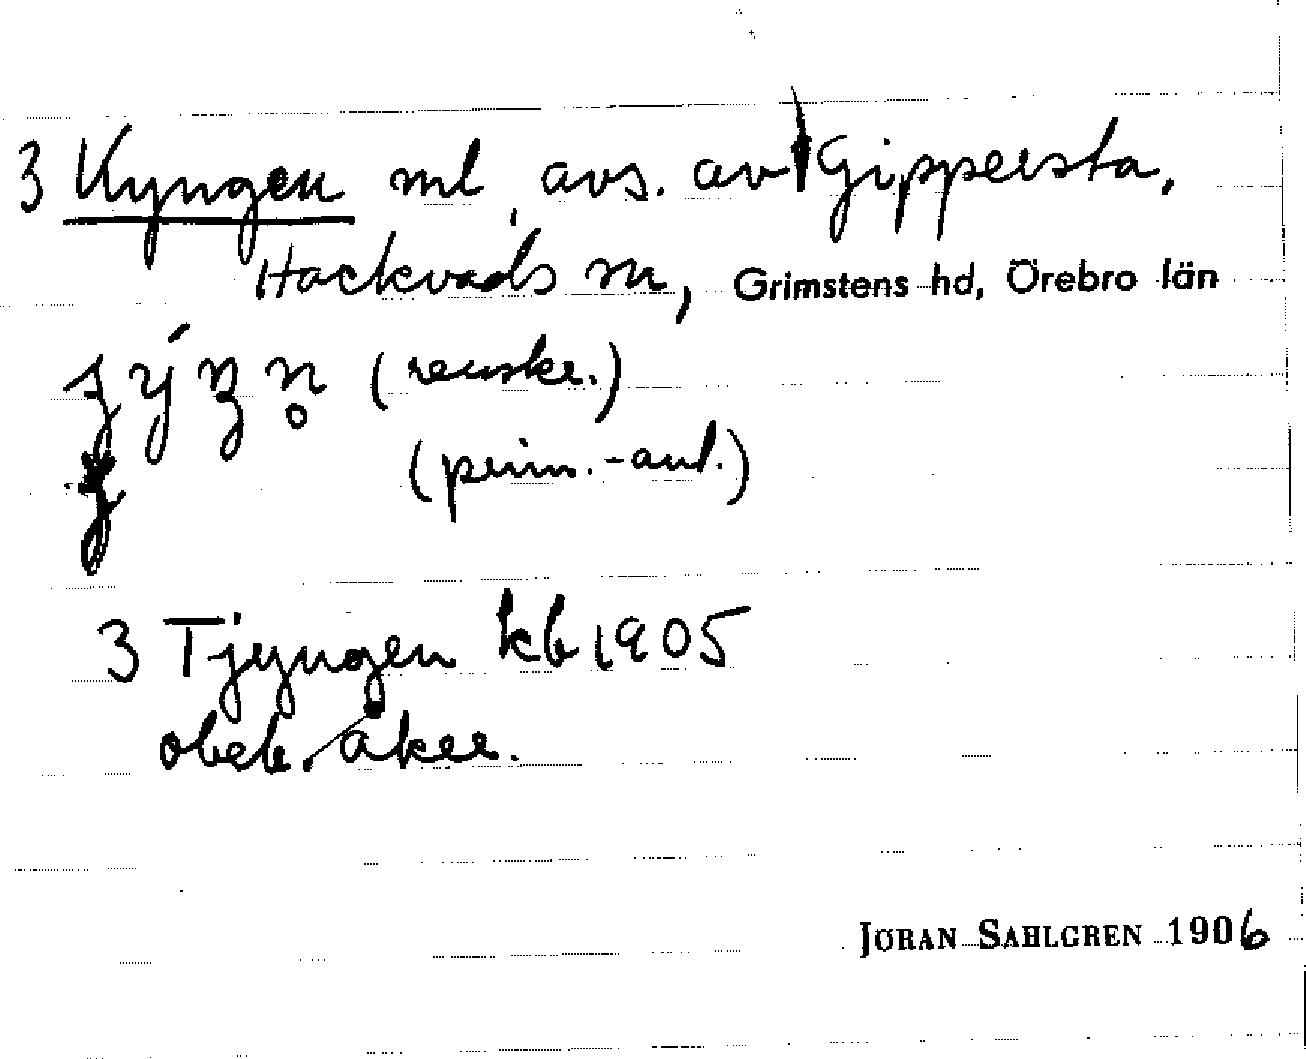 3 Kyngen ml, avs. av Gippersta,
Hackvads sn, Grimstens hd, Örebro län
(renskr.)
(prim.-anl.)
3 Tjyngen kb 1905
obeb. åker.
JÖRAN SAHLGREN 1906